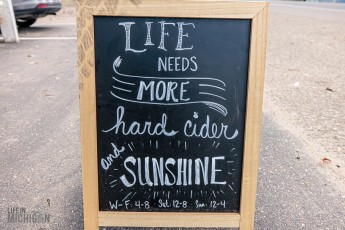 LIFE
NEEDS
MORE
hard cider
and
SUNSHINE
W-F: 4-8 Sat. 12-8 Sun: 12-4
LIFE IN
MICHIGAN